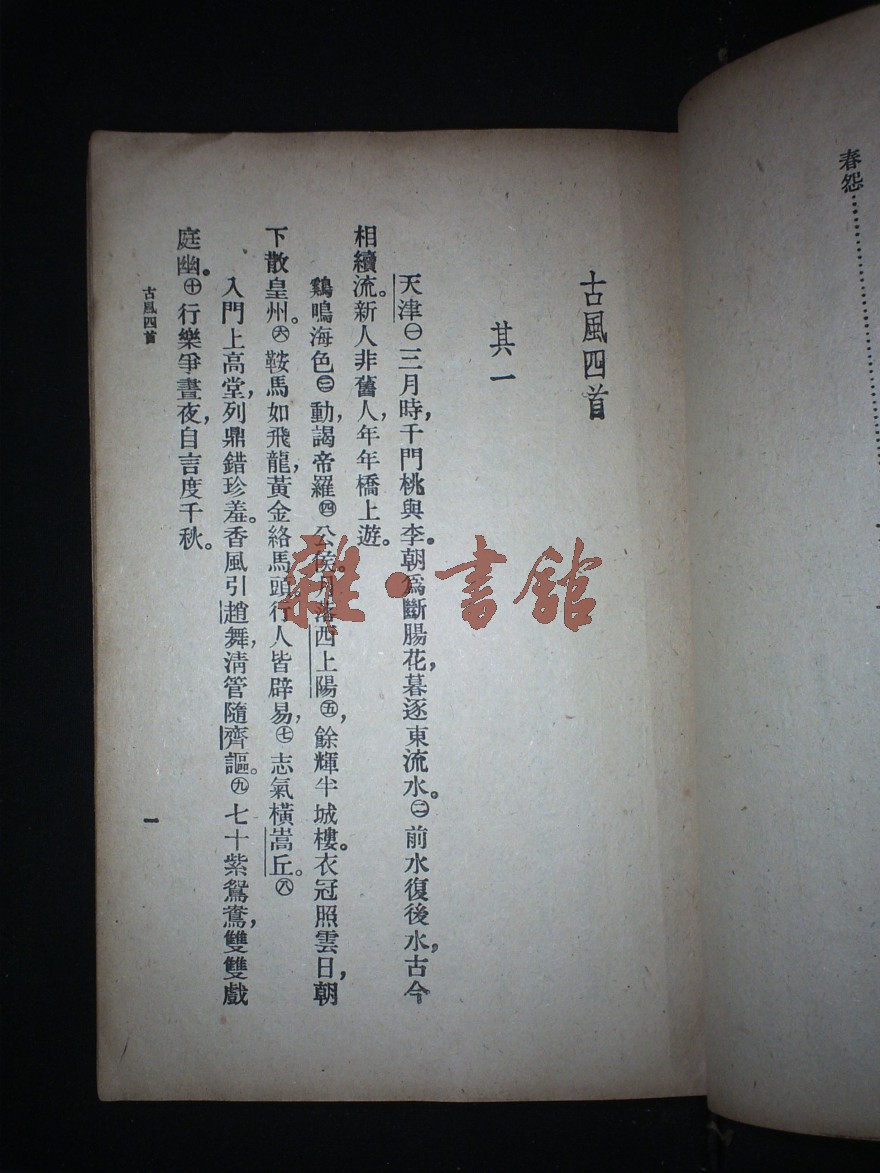 春怨…………………
古風四首
其一
天津㊀三月時，千門桃與李。朝爲斷腸花，暮逐東流水。㊁前水復後水，古今
相續流。新人非舊人，年年橋上遊。
鷄鳴海色㊂動，謁帝羅㊃公侯。月落西上陽㊄，餘輝半城樓。衣冠照雲日，朝
下散皇州。㊅鞍馬如飛龍，黃金絡馬頭。行人皆辟易，㊆志氣橫嵩丘。㊇
入門上高堂，列鼎錯珍羞。香風引趙舞，淸管隨齊謳。㊈七十紫鴛鴦，雙雙戲
庭幽。㊉行樂爭晝夜，自言度千秋。
古風四首
一
雜·書館